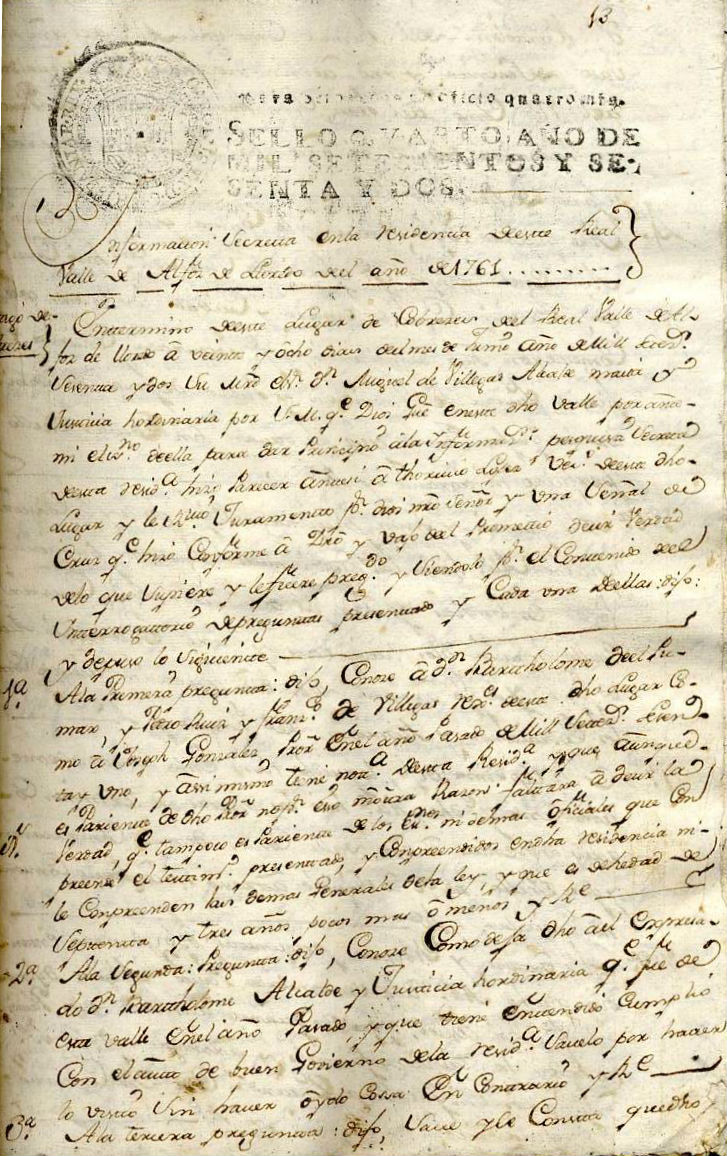 13
oficio quatro mrs.
SELLO QVARTO AÑO DE
MIL SETECIENTOS Y SE-
SENTA Y DOS.
Ynformazion Secreta en la residencia deste Real
Valle de Alfoz de Lloredo del año de 1761
En termino deste Lugar de Cobreces del Real Valle de Al-
foz de Lloredo á veinte y ocho dias del mes de año de Mill Setez.
Sesenta y dos Su Mrd el Sr. Dn. Miguel de Villegas Alcalde maior y
Justicia hordinaria por S. M. q.e Dios g.e en este dho Valle por ante
mi el esno. de ella para dar Principio á la Ynformn. pesquisa Secreta
desta resid.a hizo Parecer ante si á Lopez Vez.o deste dho
Lugar y le Juramento p.r dios nro Señor y una Señal de
Cruz q.e hizo Conforme á Dro y vajo del Prometio decir Verdad
de lo que supiere y le fuere preg.do y siendolo p.r el Contenido del
Ynterrogattorio de preguntas presentado y Cada una de ellas: dijo:
y depuso lo siguiente
1a A la Primera pregunta: dijo, Conoze á Dn. Bartholome del Pu-
mar, y Pedro Ruiz y Fran.co de Villegas vez.s deste dho Lugar Co-
mo á Joseph Gonzalez Pror. en el año Pasado de Mill Setez. Sesen-
ta y uno, y assi mismo tiene not.a desta Resid.a y que aunque
es Pariente de dho Pror no p.r eso ni otra Razon faltara á decir la
Verdad, q.e tampoco es Pariente de los es.nos ni demas ofiziales que Con
preende el testim.o presentado, y Conpreendidos en dha residencia ni
le Conpreenden las demas Generales de la ley, y que es de hedad de
Settenta y tres años pocos mas ó menos y R.e
2a A la Segunda: Pregunta: dijo, Conoze Como deja dho á el expresa-
do Dn. Bartholome Alcalde y Justicia hordinaria q.e fue de
este Valle en el año Pasado, y que tiene entendido Cumplió
Con el auto de buen Govierno de la resid.a Savelo por haver
lo visto Sin haver oydo Cossa En Contrario y R.e
3a A la tercera pregunta: dijo, Save y le Consta que dho